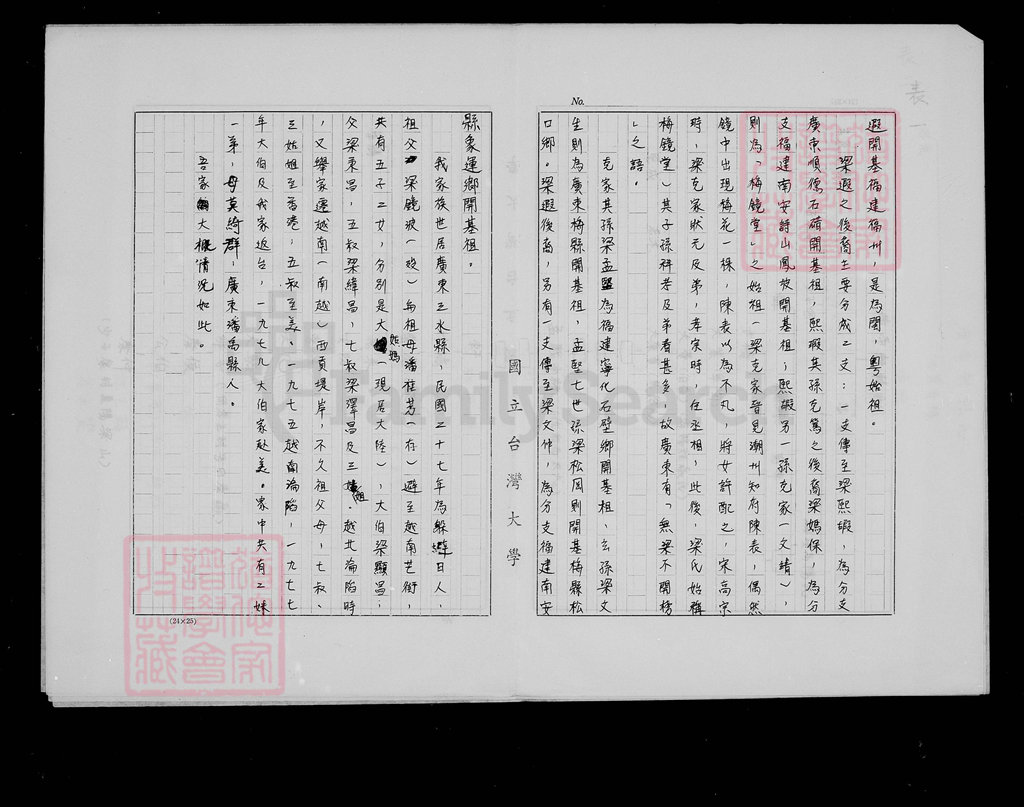 No.
遐開基福建福州，是為閩，粵始祖。
梁遐之後裔主要分成二支：一支傳至梁熙嘏，為分支
廣東順德石碏開基祖，熙嘏其孫克篤之後裔梁媽保，為分
支福建南安詩山鳳坡開基祖；熙嘏另一孫克家（文靖），
則為「梅鏡堂」之始祖（梁克家晉見潮州知府陳表，偶然
鏡中出現梅花一株，陳表以為不凡，將女許配之，宋高宗
時，梁克家狀元及第，孝宗時，任丞相，此後，梁氏始稱
梅鏡堂）其子孫祥若及弟者甚多，故廣東有「無梁不開榜
」之語。
克家其孫梁孟堅為福建寧化石壁鄉開基祖，玄孫梁文
生則為廣東梅縣開基祖，孟堅七世孫梁松風則開基梅縣松
口鄉。梁遐後裔，另有一支傳至梁文仲，為分支福建南安
國立台灣大學
縣象運鄉開基祖。
我家族世居廣東三水縣，民國二十七年為躲避日人，
祖父梁鏡波（歿）偕祖母潘桂芳（存）避至越南芒街，
共有五子二女，分別是大姑媽（現居大陸），大伯梁顯昌；
父梁東昌，五叔梁緯昌，七叔梁澤昌及三姑姐。越北淪陷時
，又舉家遷越南（南越）西貢堤岸，不久祖父母，七叔、
三姑姐至香港，五叔至美。一九七五越南淪陷，一九七七
年大伯及我家返台，一九七九大伯家赴美。家中共有二妹
一弟，母莫綺群，廣東潘禹縣人。
吾家大概情況如此。
(24×25)
FamilySearch